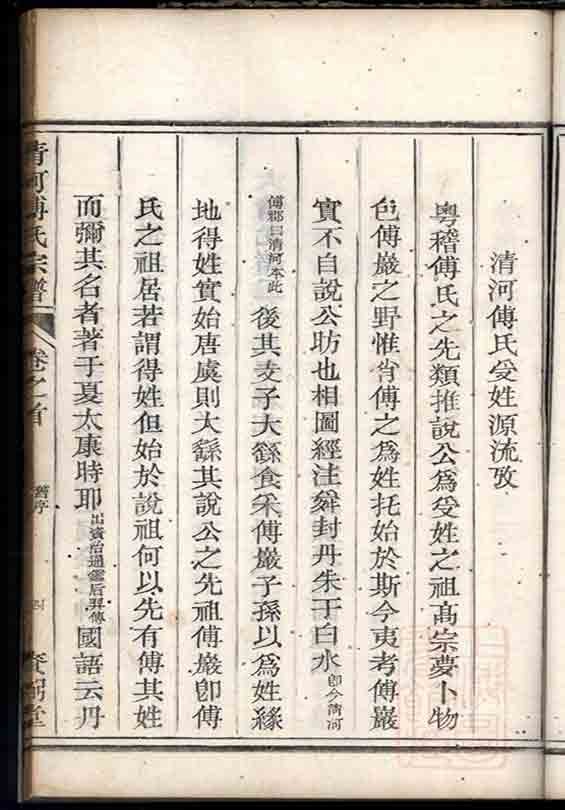 清河傅氏受姓源流攷
粵稽傅氏之先類推說公爲受姓之祖高宗夢卜物
色傅巖之野惟肖傅之爲姓托始於斯今夷考傅巖
實不自說公昉也相圖經注舜封丹朱于白水卽今清河
傅郡曰清河本此後其支子大繇食采傅巖子孫以爲姓緣
地得姓實始唐虞則大繇其說公之先祖傅巖卽傅
氏之祖居若謂得姓但始於說祖何以先有傅其姓
而彌其名者著于夏太康時耶出資治通鑑后羿傳國語云丹
清河傅氏宗譜 卷之首 舊序 堂